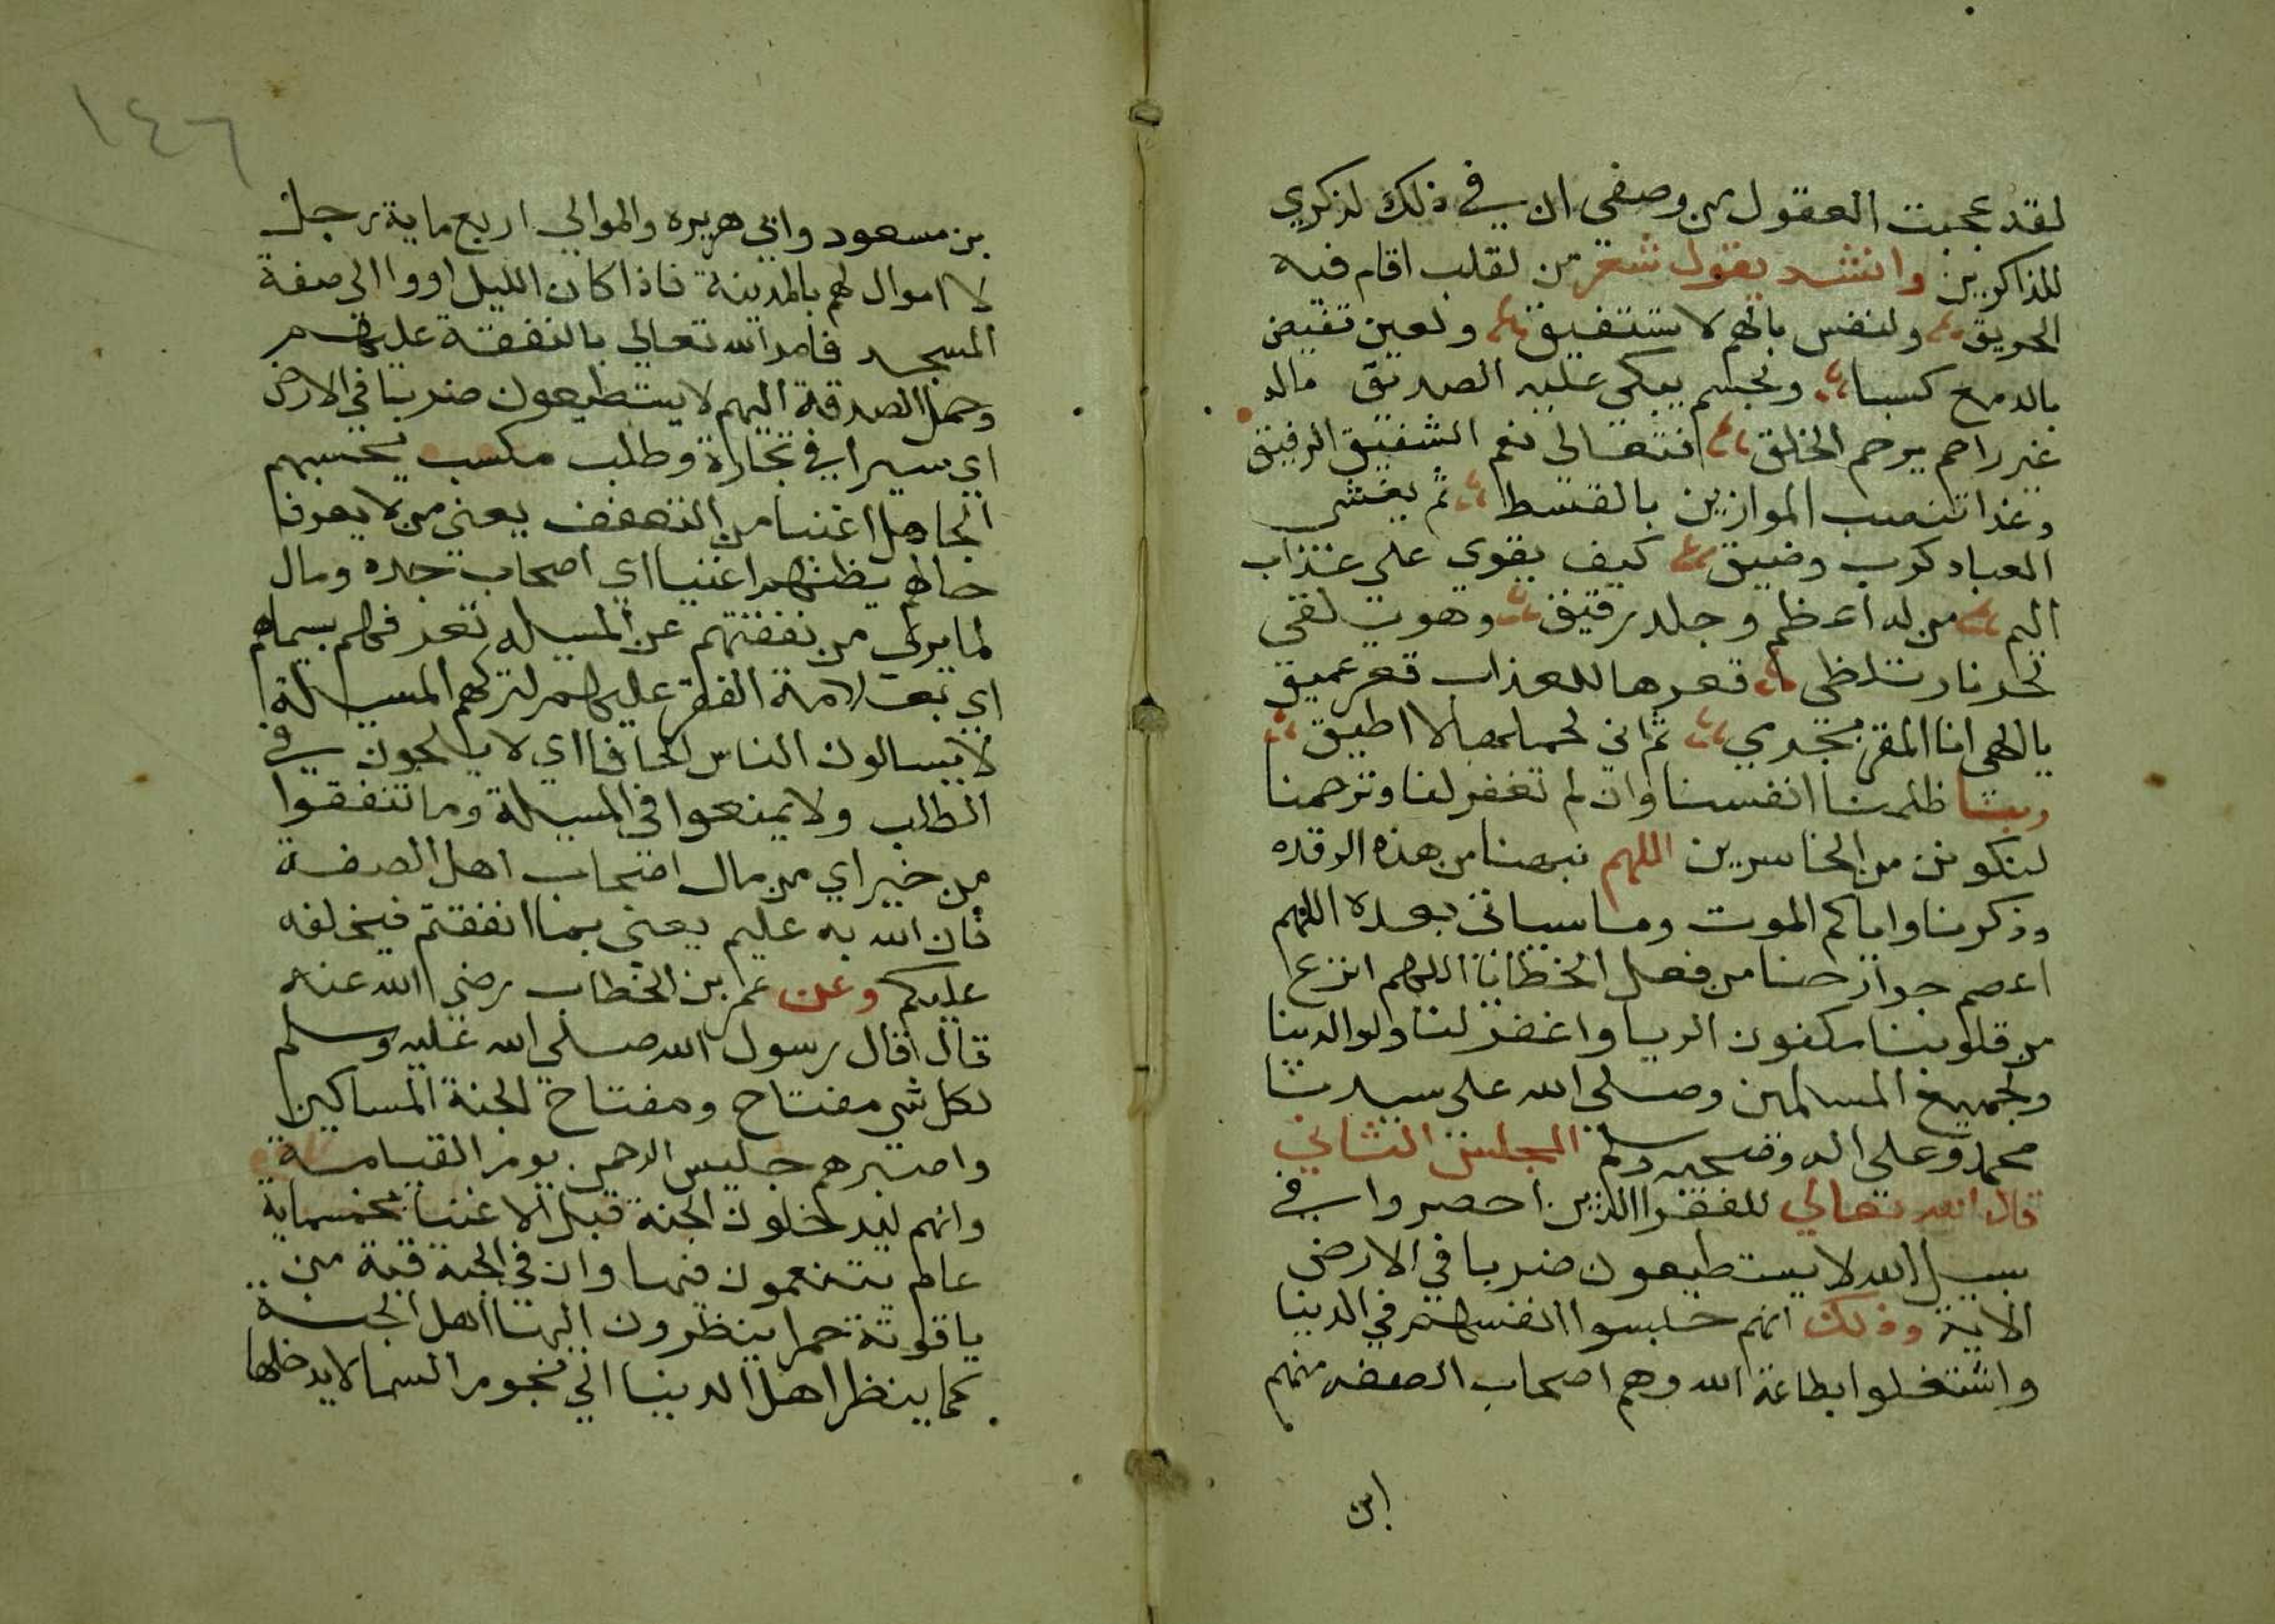 لقد عجبت العقول من وصفي ان في ذلك لذكري
للذاكرين وانشد يقول شعر من لقلب اقام فيه
الحريق ولنفس بالهم لا تستفيق ولعين تفيض
بالدمع كسبا ولجسم يبكي عليه الصديق مالد
غير راحم يرحم الخلق فتعالى نعم الشفيق الرفيق
وغدا تنصب الموازين بالقسط ثم يغشى
العباد كرب وضيق كيف يقوى على عذاب
اليم من له اعظم وجلد رقيق وهوت لقى
نحد نار تتلظى قعرها للعذاب قعر عميق
يا الهي انا المقر بجدي ثم اني لحملها لا اطيق
ربنا ظلمنا انفسنا وان لم تغفر لنا وترحمنا
لنكونن من الخاسرين اللهم نبهنا من هذه الرقده
وذكرنا واياكم الموت وما سياتي بعده اللهم
اعصم جوارحنا من فعل الخطايا اللهم انزع
من قلوبنا مكفون الريا واغفر لنا ولوالدينا
ولجميع المسلمين وصلى الله على سيدنا
محمد وعلى اله وصحبه وسلم المجلس الثاني
قال الله تعالي للفقرا الذين احصروا في
سبيل الله لا يستطيعون ضربا في الارض
الاية وذلك انهم حبسوا انفسهم في الدنيا
واشتغلوا بطاعة الله وهم اصحاب الصفه منهم
ابن
١٤٦
بن مسعود وابي هريره والموالي اربع ماية رجل
لا اموال لهم بالمدينة فاذا كان الليل اووا الى صفة
المسجد فامر الله تعالي بالنفقة عليهم
وحمل الصدقة اليهم لا يستطيعون ضربا في الارض
اي سيرا في تجارة وطلب مكسب يحسبهم
الجاهل اغنيا من التعفف يعني من لا يعرف
حالهم يظنهم اغنيا اي اصحاب جده ومال
لما يرى من نفقتهم عن المسيله تعرفهم بسيماهم
اي بعلامة الفقر عليهم لتركهم المسيلة
لا يسالون الناس الحافا اي لا يلحون في
الطلب ولا يمنعوا في المسيلة وما تنفقوا
من خير اي من مال اصحاب اهل الصفة
فان الله به عليم يعني بما انفقتم فيخلفه
عليكم وعن عمر بن الخطاب رضي الله عنه
قال قال رسول الله صلى الله عليه وسلم
لكل شي مفتاح ومفتاح الجنة المساكين
واصبرهم جليس الرحمن يوم القيامة
وانهم ليدخلون الجنة قبل الاغنيا بخمسماية
عام يتنعمون فيها وان في الجنة قبة من
ياقوتة حمرا ينظرون اليها اهل الجنة
كما ينظر اهل الدنيا الي نجوم السما لا يدخلها